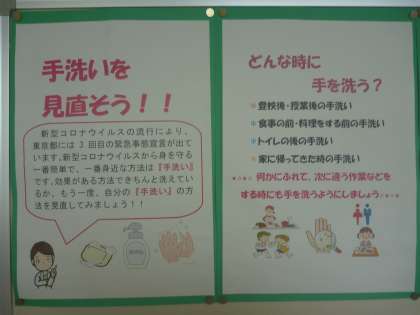 手洗いを
見直そう！！
新型コロナウイルスの流行により、
東京都には3回目の緊急事態宣言が出て
います。新型コロナウイルスから身を守る
一番簡単で、一番身近な方法は『手洗い』
です。効果がある方法できちんと洗えてい
るか、もう一度、自分の『手洗い』の方
法を見直してみましょう！！
どんな時に
手を洗う？
＊登校後・授業後の手洗い
＊食事の前・料理をする前の手洗い
＊トイレの後の手洗い
＊家に帰ってきた時の手洗い
★☆★☆ 何かにふれて、次に違う作業などを
する時にも手を洗うようにしましょう♪★☆★